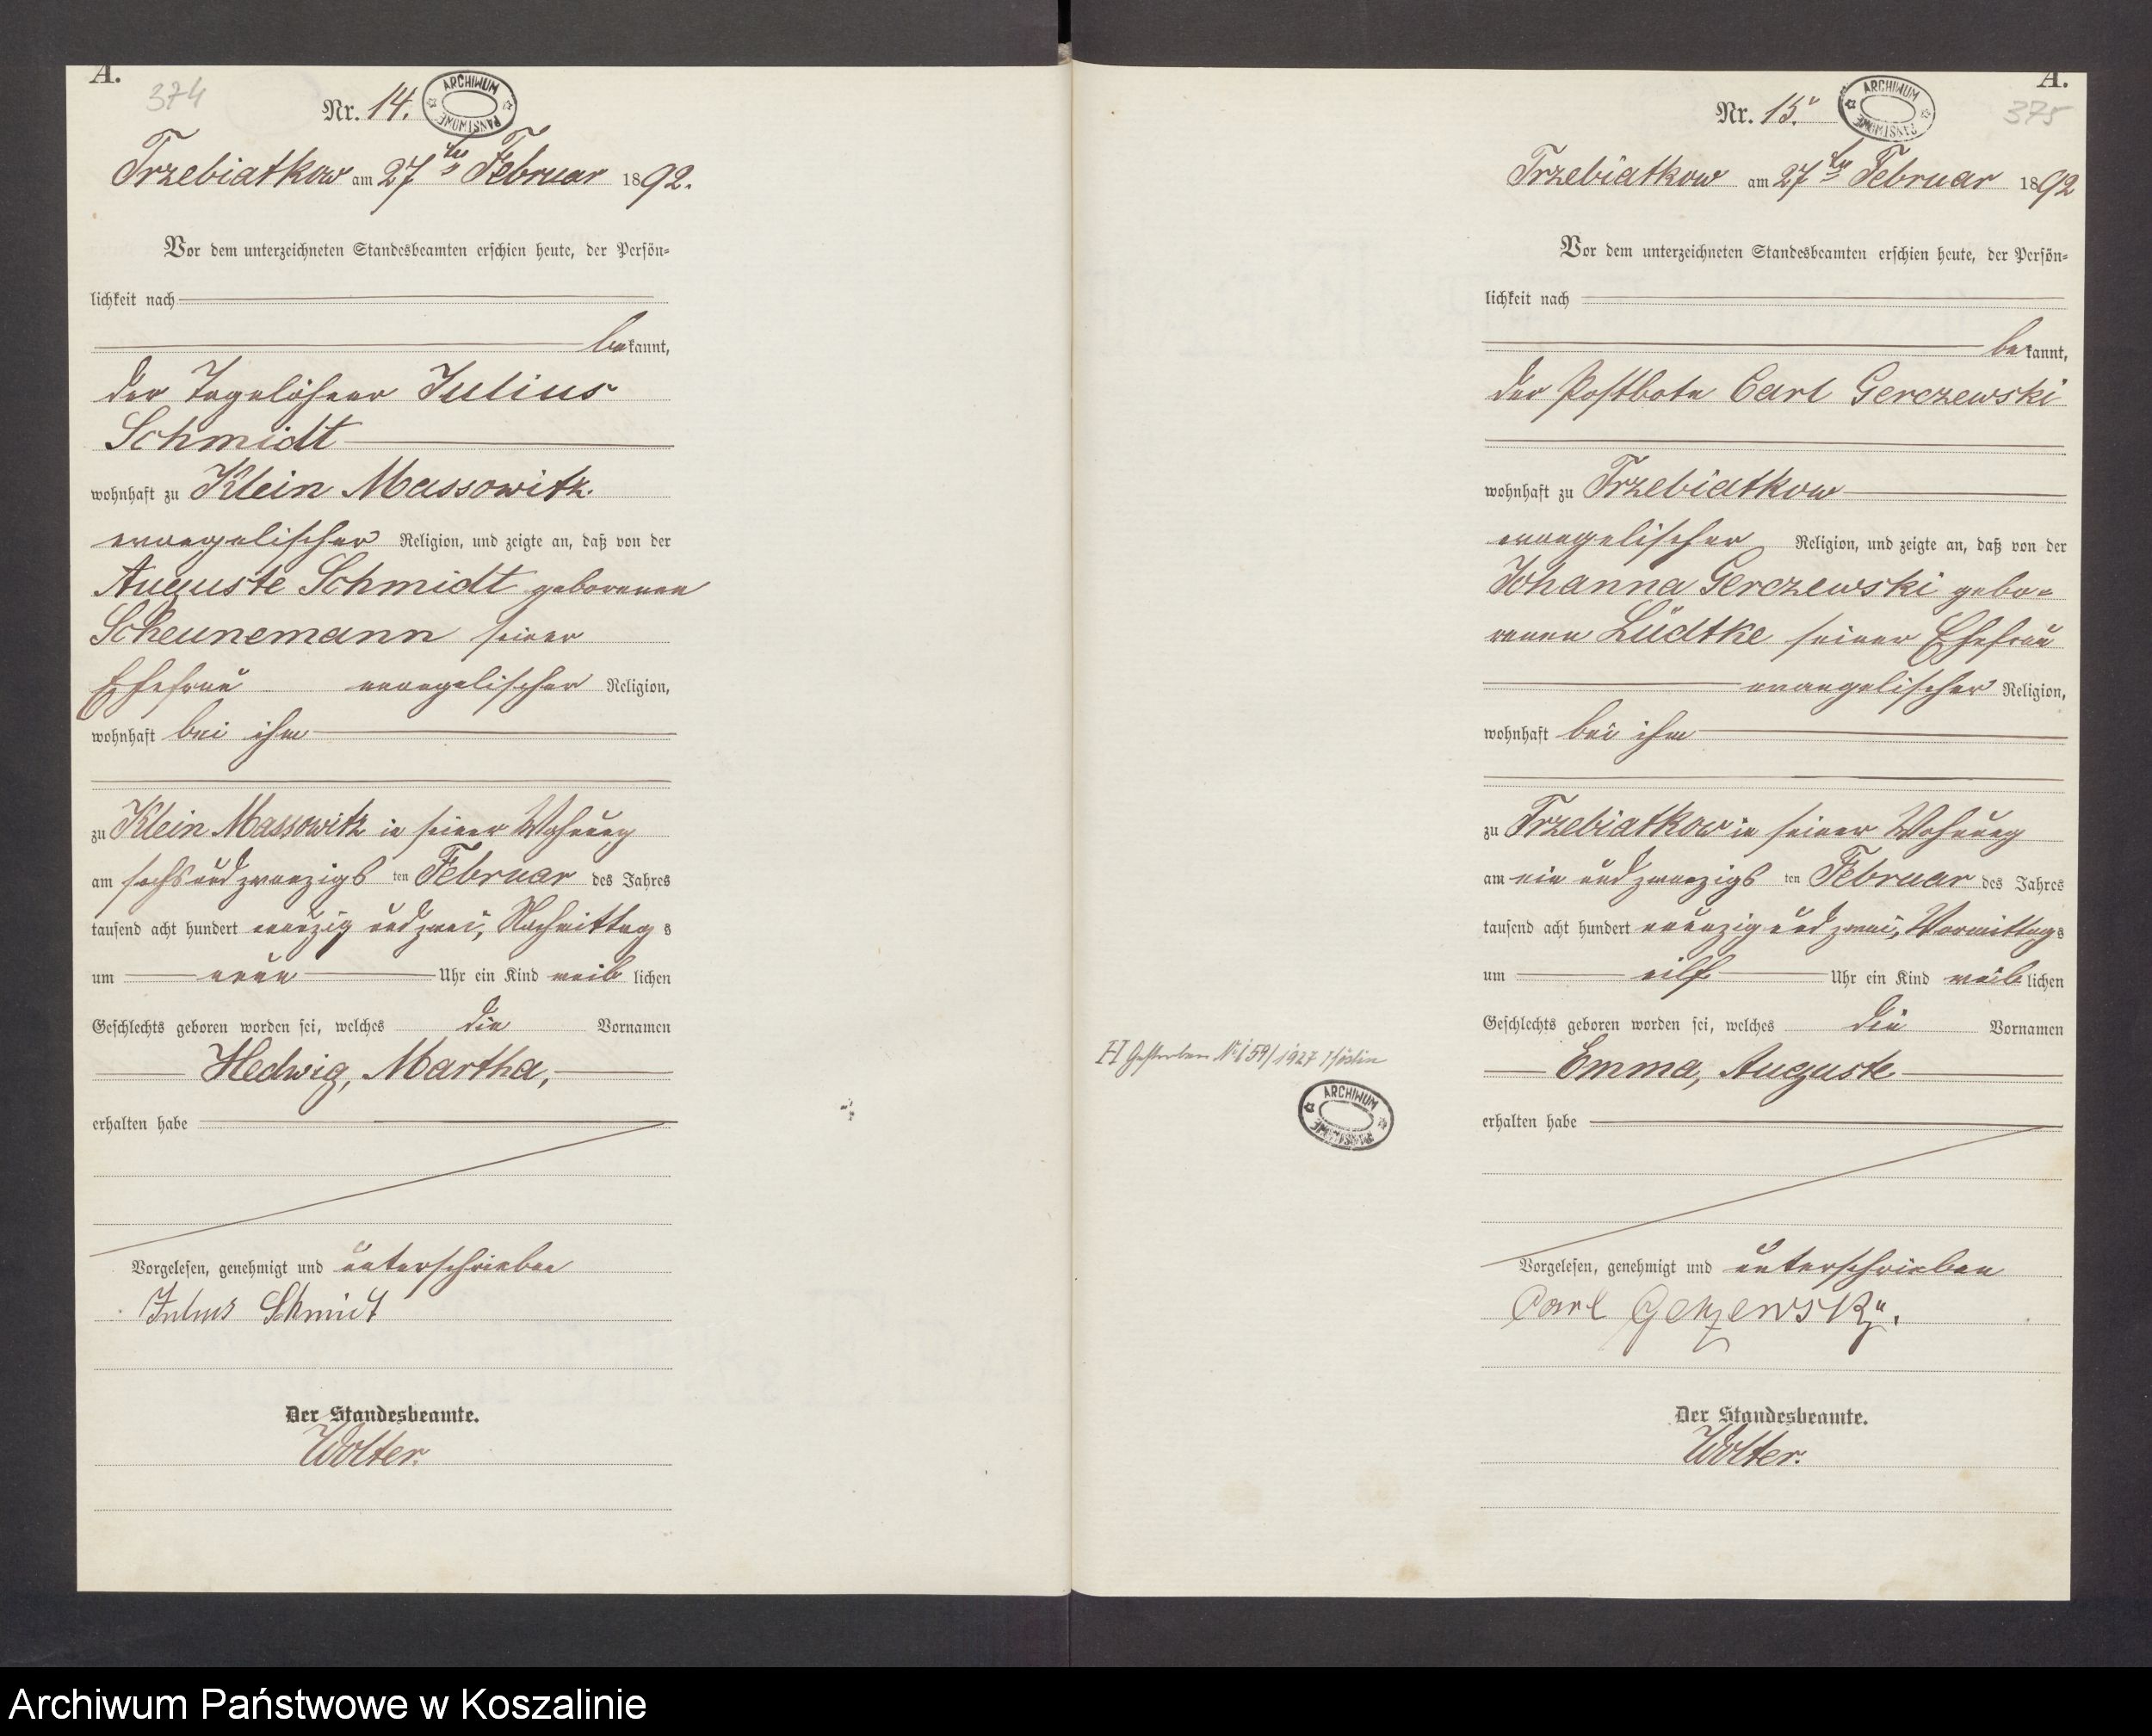 A.
374
Nr. 14.
ARCHIWUM PAŃSTWOWE
Trzebiatkow am 27ten Februar 1892.
Vor dem unterzeichneten Standesbeamten erschien heute, der Persön=
lichkeit nach
bekannt,
der Tagelöhner Julius
Schmidt
wohnhaft zu Klein Massowitz
evangelischer Religion, und zeigte an, daß von der
Auguste Schmidt geborenen
Scheunemann seiner
Ehefrau evangelischer Religion,
wohnhaft bei ihm
zu Klein Massowitz in seiner Wohnung
am sechs und zwanzigsten Februar des Jahres
tausend acht hundert neunzig und zwei, Nachmittags
um neun Uhr ein Kind weiblichen
Geschlechts geboren worden sei, welches die Vornamen
Hedwig, Martha,
erhalten habe
Vorgelesen, genehmigt und unterschrieben
Julius Schmidt
Der Standesbeamte.
Wolter.
A.
375
Nr. 15.
ARCHIWUM PAŃSTWOWE
Trzebiatkow am 27ten Februar 1892
Vor dem unterzeichneten Standesbeamten erschien heute, der Persön=
lichkeit nach
bekannt,
der Postbote Carl Gerczewski
wohnhaft zu Trzebiatkow
evangelischer Religion, und zeigte an, daß von der
Johanna Gerczewski gebo=
renen Lüdtke seiner Ehefrau
evangelischer Religion,
wohnhaft bei ihm
zu Trzebiatkow in seiner Wohnung
am ein und zwanzigsten Februar des Jahres
tausend acht hundert neunzig und zwei, Vormittags
um eilf Uhr ein Kind weiblichen
Geschlechts geboren worden sei, welches die Vornamen
Emma, Auguste
erhalten habe
H Gestorben Nr 159/1927
ARCHIWUM PAŃSTWOWE
Vorgelesen, genehmigt und unterschrieben
Carl
Der Standesbeamte.
Wolter.
Archiwum Państwowe w Koszalinie